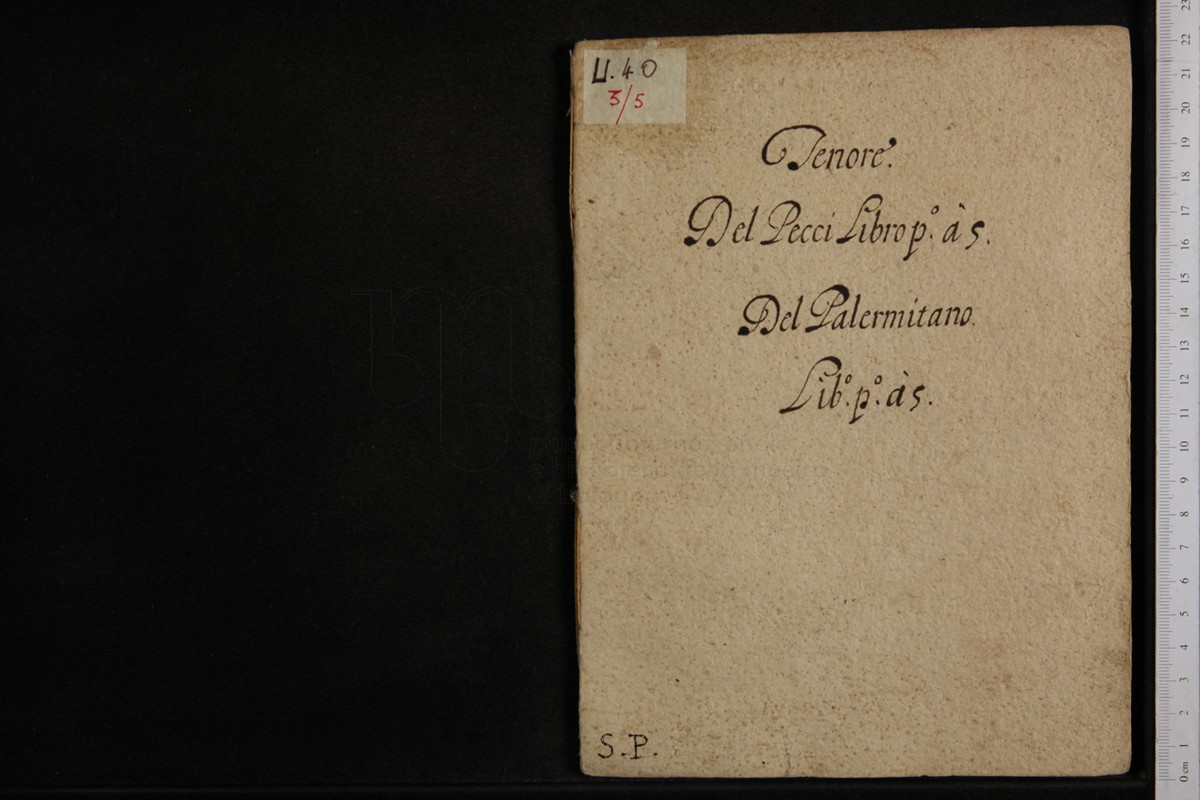 U.40
3/5
Tenore.
Del Pecci Libro p.º à 5.
Del Palermitano.
Lib.º p.º à 5.
S.P.
23
22
21
20
19
18
17
16
15
14
13
12
11
10
9
8
7
6
5
4
3
2
1
0 cm